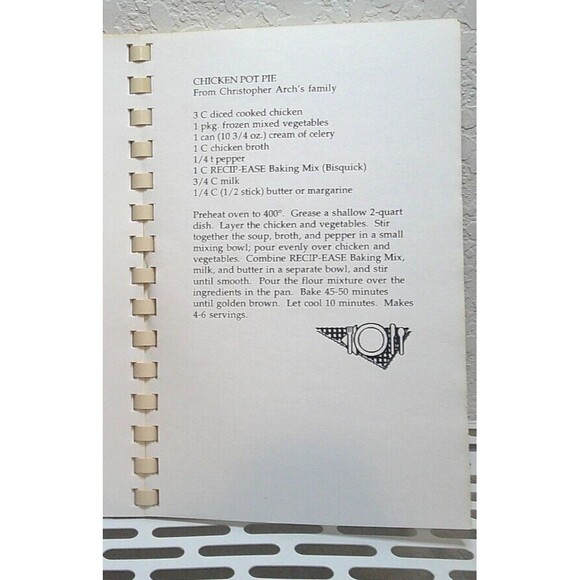 CHICKEN POT PIE
From Christopher Arch's family
3 C diced cooked chicken
1 pkg. frozen mixed vegetables
1 can (10 3/4 oz.) cream of celery
1 C chicken broth
1/4 t pepper
1 C RECIP-EASE Baking Mix (Bisquick)
3/4 C milk
1/4 C (1/2 stick) butter or margarine
Preheat oven to 400°. Grease a shallow 2-quart
dish. Layer the chicken and vegetables. Stir
together the soup, broth, and pepper in a small
mixing bowl; pour evenly over chicken and
vegetables. Combine RECIP-EASE Baking Mix,
milk, and butter in a separate bowl, and stir
until smooth. Pour the flour mixture over the
ingredients in the pan. Bake 45-50 minutes
until golden brown. Let cool 10 minutes. Makes
4-6 servings.